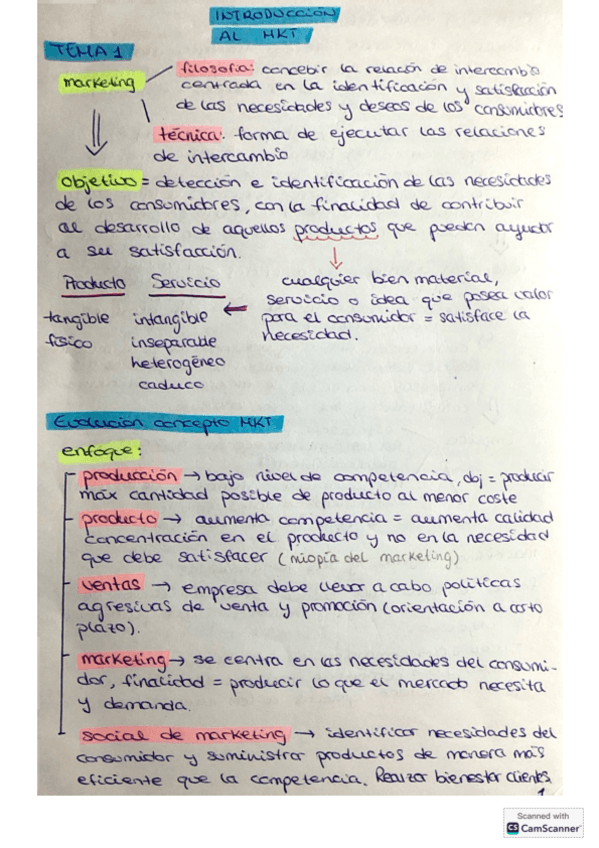 INTRODUCCIÓN
AL MKT
TEMA 1
marketing
filosofía: concebir la relación de intercambio
centrada en la identificación y satisfacción
de las necesidades y deseos de los consumidores
técnica: forma de ejecutar las relaciones
de intercambio
objetivo = detección e identificación de las necesidades
de los consumidores, con la finalidad de contribuir
al desarrollo de aquellos productos que puedan ayudar
a su satisfacción.
Producto Servicio
cualquier bien material,
servicio o idea que posea valor
para el consumidor = satisface la
necesidad.
tangible
físico
intangible
inseparable
heterogéneo
caduco
Evolución concepto MKT
enfoque:
producción → bajo nivel de competencia, obj = producir
máx cantidad posible de producto al menor coste
producto → aumenta competencia = aumenta calidad
concentración en el producto y no en la necesidad
que debe satisfacer (miopía del marketing)
ventas → empresa debe llevar a cabo políticas
agresivas de venta y promoción (orientación a corto
plazo).
marketing → se centra en las necesidades del consumi-
dor, finalidad = producir lo que el mercado necesita
y demanda.
social de marketing → identificar necesidades del
consumidor y suministrar productos de manera más
eficiente que la competencia. Realzar bienestar clientes
1
Scanned with
CS CamScanner